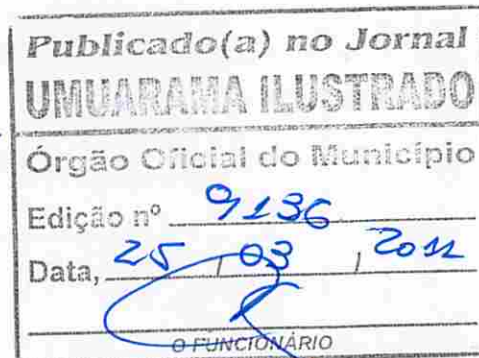 Publicado(a) no Jornal
UMUARAMA ILUSTRADO
Órgão Oficial do Município
Edição nº 9136
Data, 25 / 03 /
O FUNCIONÁRIO